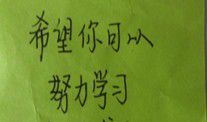 希望你可以
努力学习